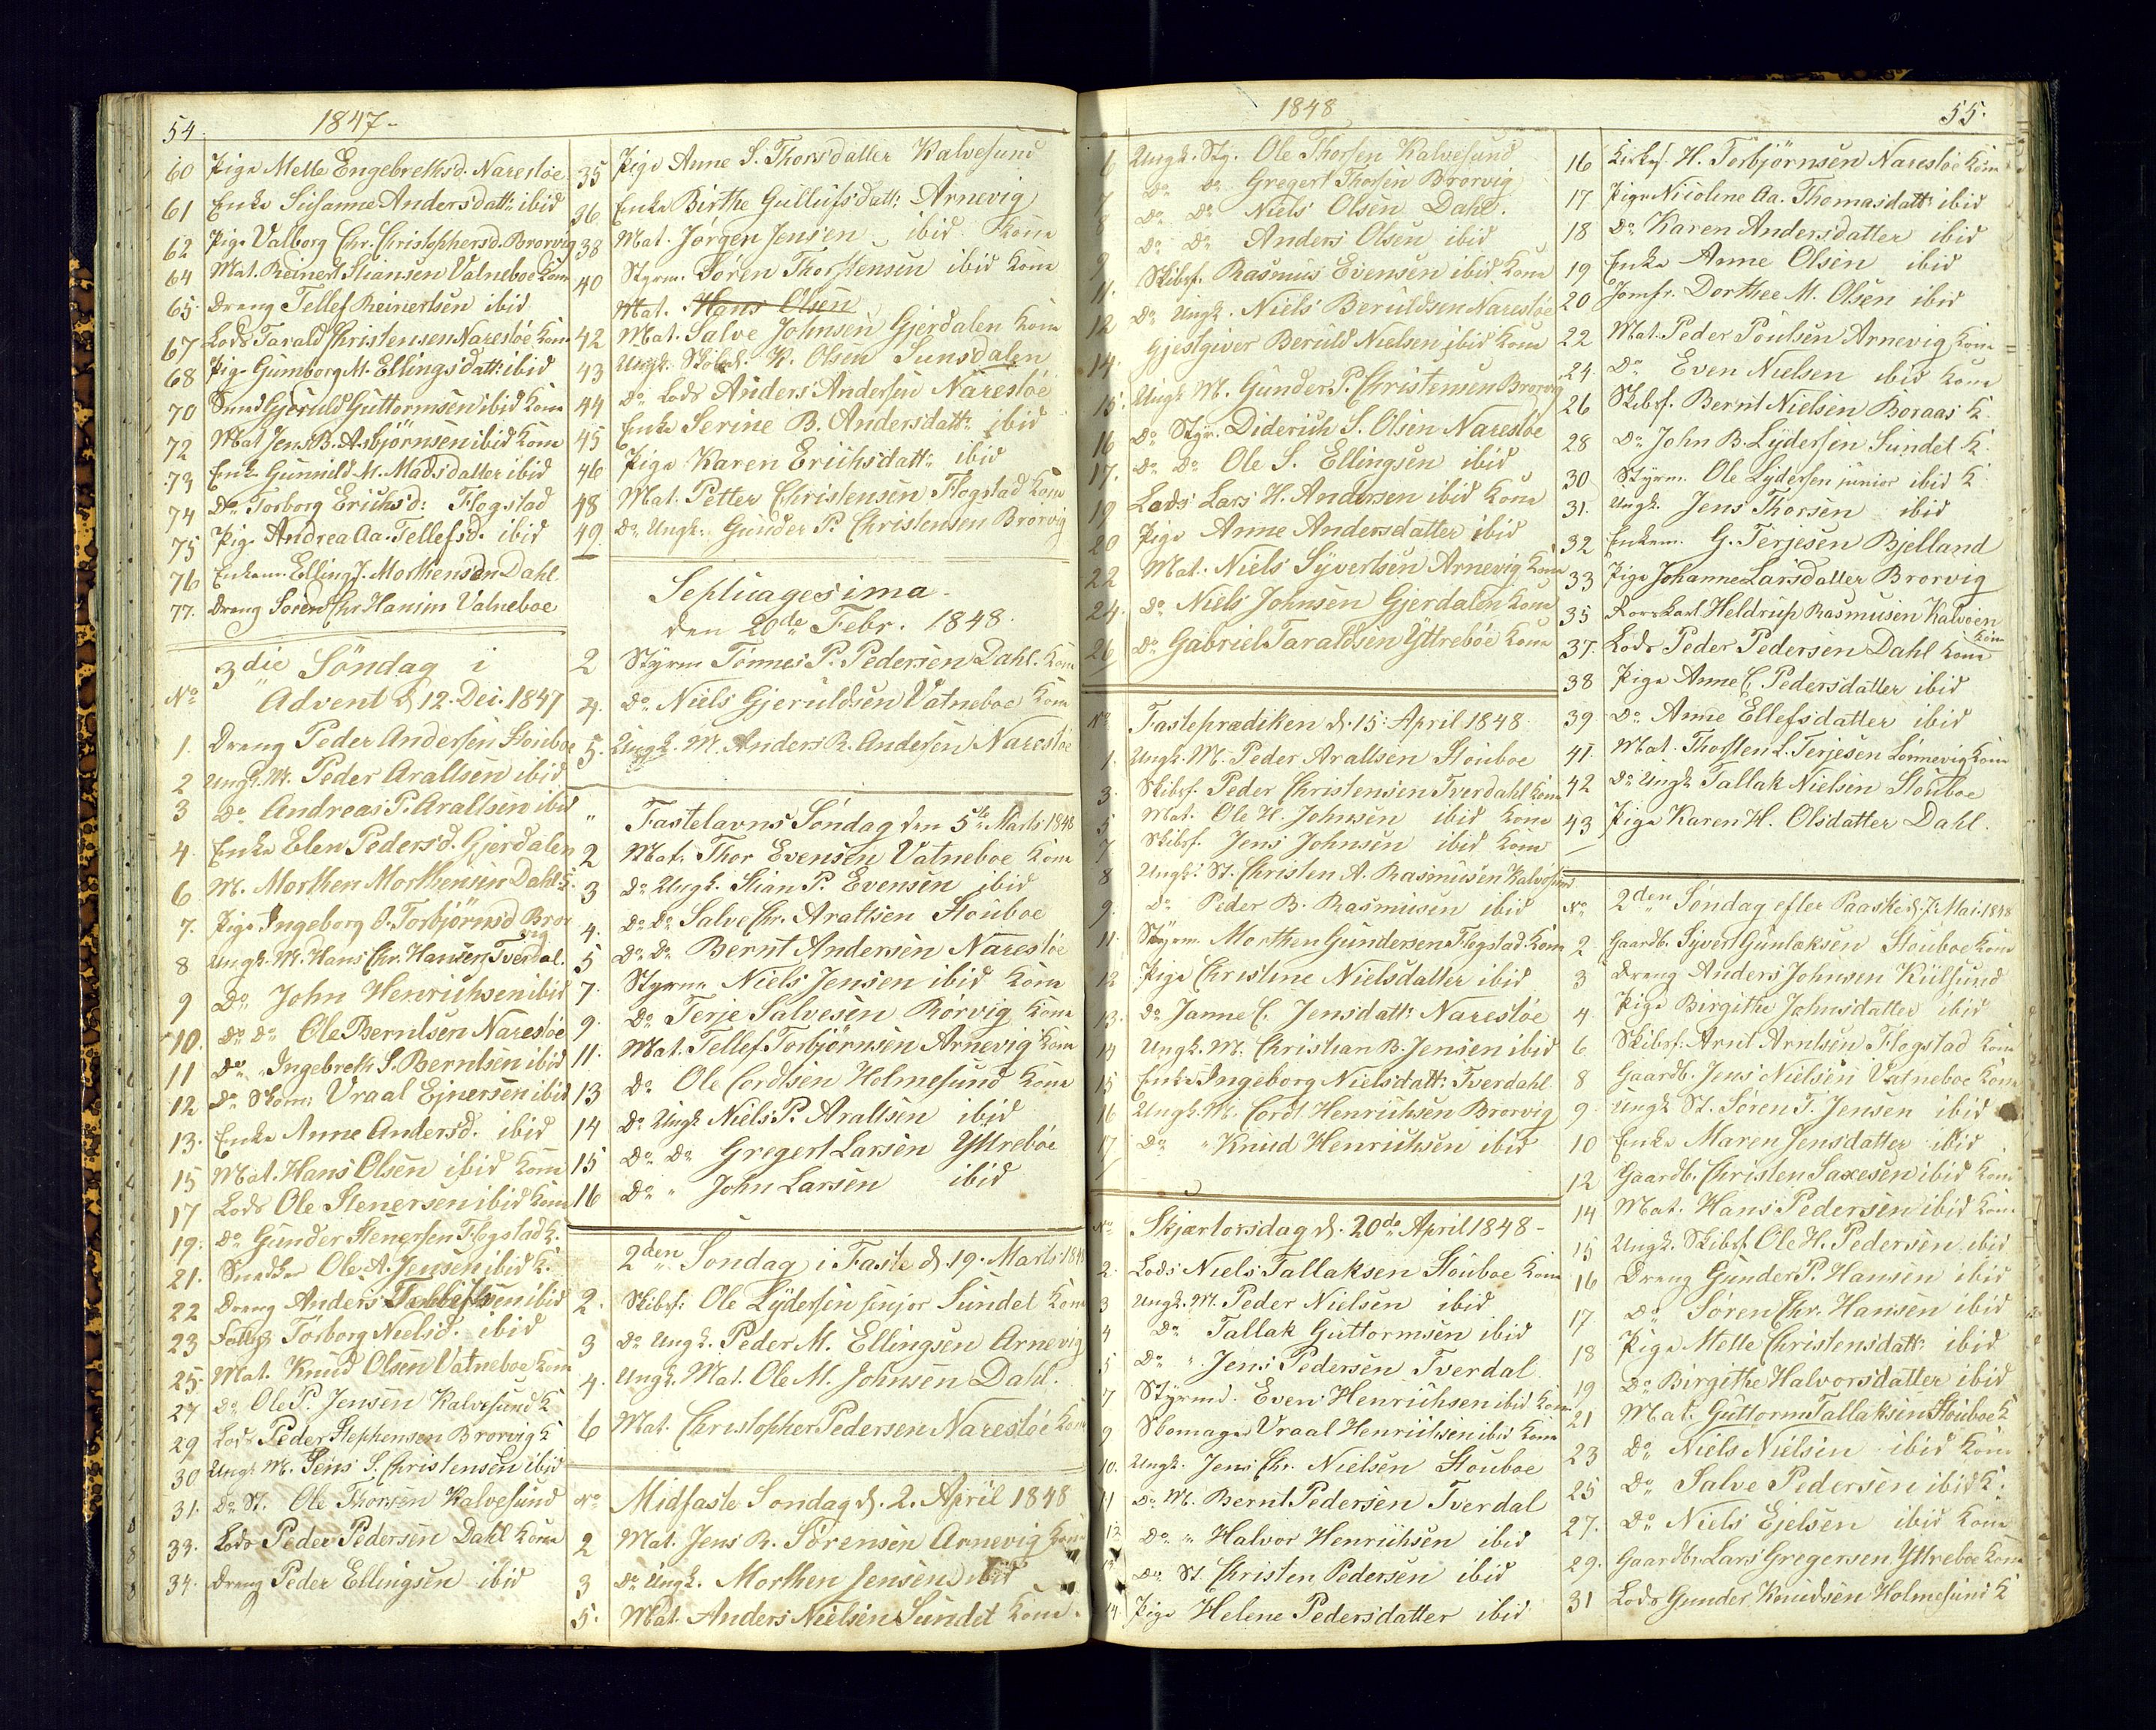 54. 1847-
60 Pige Mette Engebrethsd. Narestöe
61 Enke Susanne Andersdatt: ibid
62 Pige Valborg Chr. Christophersd. Brorvig
64 Mat. Reinert Stiansen Vatneboe Kone
65. Dreng Tellef Reinertsen ibid
67 Lods Tarald Christensen Naresöe Kone
68 Pige Gumborg M. Ellingsdatt: ibid
70 Smed Gjeruld Guttormsen ibid Kone
72 Mat Jens B. Asbjörnsen ibid Kone
73 Enke Gunnild M. Madsdatter ibid
74 Do Torborg Erichsd: Flogstad
75 Pige Andrea Aa. Tellefsd. ibid
76 Enkem. Elling J. Morthensen Dahl
77. Dreng Soren Chr Hansen Vatneboe
3die Söndag i
No Advent d. 12. Dec. 1847
1. Dreng Peder Andersen Stouboe
2 Ungk. M. Peder Araltsen ibid
3 Do Andreas P. Araltsen ibid
4. Enke Elen Pedersd. Gjerdalen
6 M. Morthen Morthensen Dahl K.
7. Pige Ingeborg O. Torbjörnsd Brorvig
8 Ungk. M. Hans Chr. Hansen Tverdal.
9 Do John Henrichsen ibid
10. Do Do Ole Berntsen Naresöe
11 Do Ingebreth S. Berntsen ibid
12 Do Skom: Vraal Ejnersen ibid
13. Enke Anne Andersd. ibid
15 Mat. Hans Olsen ibid Kone
17 Lods Ole Stenersen ibid Kone
19. Do Gunder Stenersen Flogstad K.
21. Snedker Ole A. Jensen ibid K.
22 Dreng Anders ibid
23 Torborg Neelsd. ibid
25. Mat. Knud Olsen Vatneboe Kone
27 Do Ole P. Jensen Kalvesund K
29 Lods Peder Stephensen Brorvig K
30 Ungk M. Jens S. Christensen ibid
31. Do St. Ole Thorsen Kalvesund
33. Lods Peder Pedersen Dahl Kone
34. Dreng Peder Ellingsen ibid
35 Pige Anne S. Thorsdatter Kalvesund
36. Enke Birthe Gullufsdatt: Arnevig
38 Mat. Jørgen Jensen ibid Kone
40 Styrm. Søren Thorstensen ibid Kone
Mat. Hans Olsen
42 Mat. Salve Johnsen Gjerdalen Kone
43 Ungk. Skibsf. K. Olsen Sunsdalen
44 Do Lods Anders Andersen Naresöe
45 Enke Serine B. Andersdatt: ibid
46 Pige Karen Erichsdatt: ibid
48 Mat. Petter Christensen Flogstad Kone
49. Do Ungk: Gunder P. Christensen Brorvig
Septuagesima
den 20de Febr. 1848.
2 Styrm Tönnes P. Pedersen Dahl. Kone
4. Do Niels Gjeruldsen Vatneboe Kone
5. Ungk. M. Anders R. Andersen Naresöe
" Fastelavns Söndag den 5te Marts 1848
2 Mat. Thor Evensen Vatneboe Kone
3 Do Ungk. Stian P. Evensen ibid
4. Do Do Salve Chr. Araltsen Stouboe
5 Do Do Bernt Andersen Naresöe
7. Styrm Niels Jensen ibid Kone
9. Do Terje Salvesen Rörvig Kone
11. Mat. Tellef Torbjörnsen Arnevig Kone
13 Do Ole Cordtsen Holmesund Kone
14 Do Ungk Niels P. Araltsen ibid
15 Do Do Gregert Larsen Yttreböe
16 Do " John Larsen ibid
2den Söndag i Faste d. 19. Marts 1848
2. Skibsf: Ole Lydersen senjor Sundet Kone
3 Do Ungk. Peder M. Ellingsen Arnevig
4. Ungk. Mat. Ole M. Johnsen Dahl.
6 Mat. Christopher Pedersen Naresöe Kone
No Midfaste Söndag d. 2. April 1848
2 Mat. Jens R. Sørensen Arnevig Kone
3 Do Ungk. Morthen Jensen ibid
5. Mat. Anders Nielsen Sundet Kone.
1848 55.
6 Ungk. Sty. Ole Thorsen Kalvesund
7 Do Do Gregert Thorsen Brorvig
8 Do Do Niels Olsen Dahl.
9 Do Do Anders Olsen ibid
11. Skibsf. Rasmus Evensen ibid Kone
12 Do Ungk. Niels Beruldsen Naresöe
14. Gjestgiver Beruld Nielsen ibid Kone
15. Ungk M. Gunder P. Christensen Brorvig
16 Do Styr. Diderich S. Olsen Naresöe
17. Do Do Ole S. Ellingsen ibid
19 Lods Lars H. Andersen ibid Kone
20 Pige Anne Andersdatter ibid
22 Mat. Niels Syvertsen Arnevig Kone
24. Do Niels Johnsen Gjerdalen Kone
26 Do Gabriel Taraldsen Yttreböe Kone
No Fasteprædiken d. 15. April 1848.
1. Ungk. M. Peder Araltsen Stouboe
3. Skibsf. Peder Christensen Tverdahl Kone
5 Mat. Ole H. Johnsen ibid Kone
7 Skibsf. Jens Johnsen ibid Kone
8 Ungk. St. Christen A. Rasmusen Kalvøsund
9. Do Peder B. Rasmusen ibid
11. Styrm. Morthen Gundersen Flogstad Kone
12 Pige Christine Nielsdatter ibid
13. Do Janne C. Jensdatt: Naresöe
14 Ungk. M. Christian B. Jensen ibid
15 Enke Ingeborg Nielsdatt: Tverdahl
16 Ungk. M. Cordt Henrichsen Brorvig
17 Do " Knud Henrichsen ibid
No Skjærtorsdag d. 20de April 1848-
2. Lods Niels Tallaksen Stouboe Kone
3 Ungk. M. Peder Nielsen ibid
4 Do Tallak Guttormsen ibid
5 Do " Jens Pedersen Tverdal
7 Styrmd. Even Henrichsen ibid Kone
9 Skomager Vraal Henrichsen ibid Kone
10. Ungk. Jens Chr. Nielsen Stouboe
11 Do M. Bernt Pedersen Tverdal
12 Do " Halvor Henrichsen ibid
13 Do St. Christen Pedersen ibid
14 Pige Helene Pedersdatter ibid
16 Kirkes. H. Torbjörnsen Naresöe Kone
17 Pige Nicoline Aa. Thomasdatt: ibid
18 Do Karen Andersdatter ibid
19 Enke Anne Olsen ibid
20 Jomfr. Dorthee M. Olsen ibid
22 Mat. Peder Poulsen Arnevig Kone
24. Do Even Nielsen ibid Kone
26 Skibsf. Bernt Nielsen Boraas K.
28 Do John B. Lydersen Sundet K.
30 Styrm. Ole Lydersen junior ibid K
31. Ungk. Jens Thorsen ibid
32 Enkem. G. Terjesen Bjelland
33 Pige Johanne Larsdatter Brorvig
35 Heldrup Rasmusen Kalvöen Kone
37. Lods Peder Pedersen Dahl Kone
38 Pige Anne C. Pedersdatter ibid
39 Do Anne Ellefsdatter ibid
41. Mat. Thorsten L. Terjesen Lönnevig Kone
42 Do Ungk Tallak Nielsen Stouboe
43 Pige Karen H. Olsdatter Dahl.
No 2den Söndag efter Paaske d. 7. Mai. 1848
2 Gaardb. Syvert Gunlæksen Stouboe Kone
3 Dreng Anders Johnsen Kiilsund
4 Pige Birgithe Johnsdatter ibid
6 Skibsf. Arnt Arntsen Flogstad Kone
8 Gaardb. Jens Nielsen Vatneboe Kone
9. Ungk St. Søren T. Jensen ibid
10 Enke Maren Jensdatter ibid
12 Gaardb. Christen Saxesen ibid Kone
14 Mat. Hans Pedersen ibid Kone
15 Ungk. Skibsf. Ole H. Pedersen ibid
16 Dreng Gunder P. Hansen ibid
17 Do Søren Chr. Hansen ibid
18 Pige Mette Christensdatt: ibid
19 Do Birgithe Halvorsdatter ibid
21 Mat. Guttorm Tallaksen Stouboe K
23 Do Niels Nielsen ibid Kone
25 Do Salve Pedersen ibid K.
27. Do Niels Ejelsen ibid Kone
29. Gaardbr Lars Gregersen Yttreboe Kone
31 Lods Gunder Knudsen Holmesund K